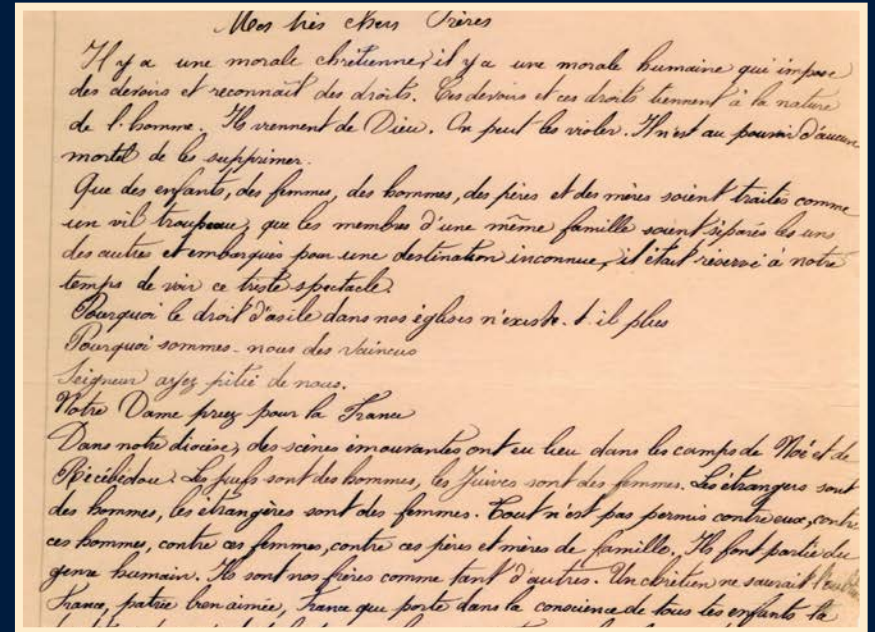 Mes très chers Frères
Il y a une morale chrétienne, il y a une morale humaine qui impose
des devoirs et reconnaît des droits. Ces devoirs et ces droits tiennent à la nature
de l'homme. Ils viennent de Dieu. On peut les violer. Il n'est au pouvoir d'aucun
mortel de les supprimer.
Que des enfants, des femmes, des hommes, des pères et des mères soient traités comme
un vil troupeau, que les membres d'une même famille soient séparés les uns
des autres et embarqués pour une destination inconnue, il était réservé à notre
temps de voir ce triste spectacle.
Pourquoi le droit d'asile dans nos églises n'existe-t-il plus
Pourquoi sommes-nous des vaincus
Seigneur ayez pitié de nous.
Notre Dame priez pour la France
Dans notre diocèse, des scènes émouvantes ont eu lieu dans les camps de Noé et de
Récébédou. Les juifs sont des hommes, les Juives sont des femmes. Les étrangers sont
des hommes, les étrangères sont des femmes. Tout n'est pas permis contre eux, contre
ces hommes, contre ces femmes, contre ces pères et mères de famille. Ils font partie du
genre humain. Ils sont nos frères comme tant d'autres. Un chrétien ne saurait l'oublier
France, patrie bien aimée, France que porte dans la conscience de tous tes enfants la